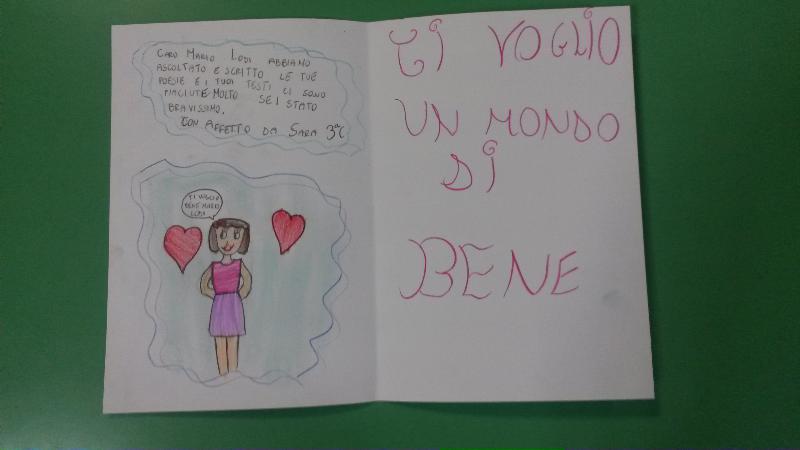 CARO MARIO LODI ABBIAMO
ASCOLTATO E SCRITTO LE TUE
POESIE E I TUOI TESTI CI SONO
PIACIUTE MOLTO SEI STATO
BRAVISSIMO.
CON AFFETTO DA SARA 3ªC
TI VOGLIO
BENE MARIO
LODI
TI VOGLIO
UN MONDO
DI
BENE